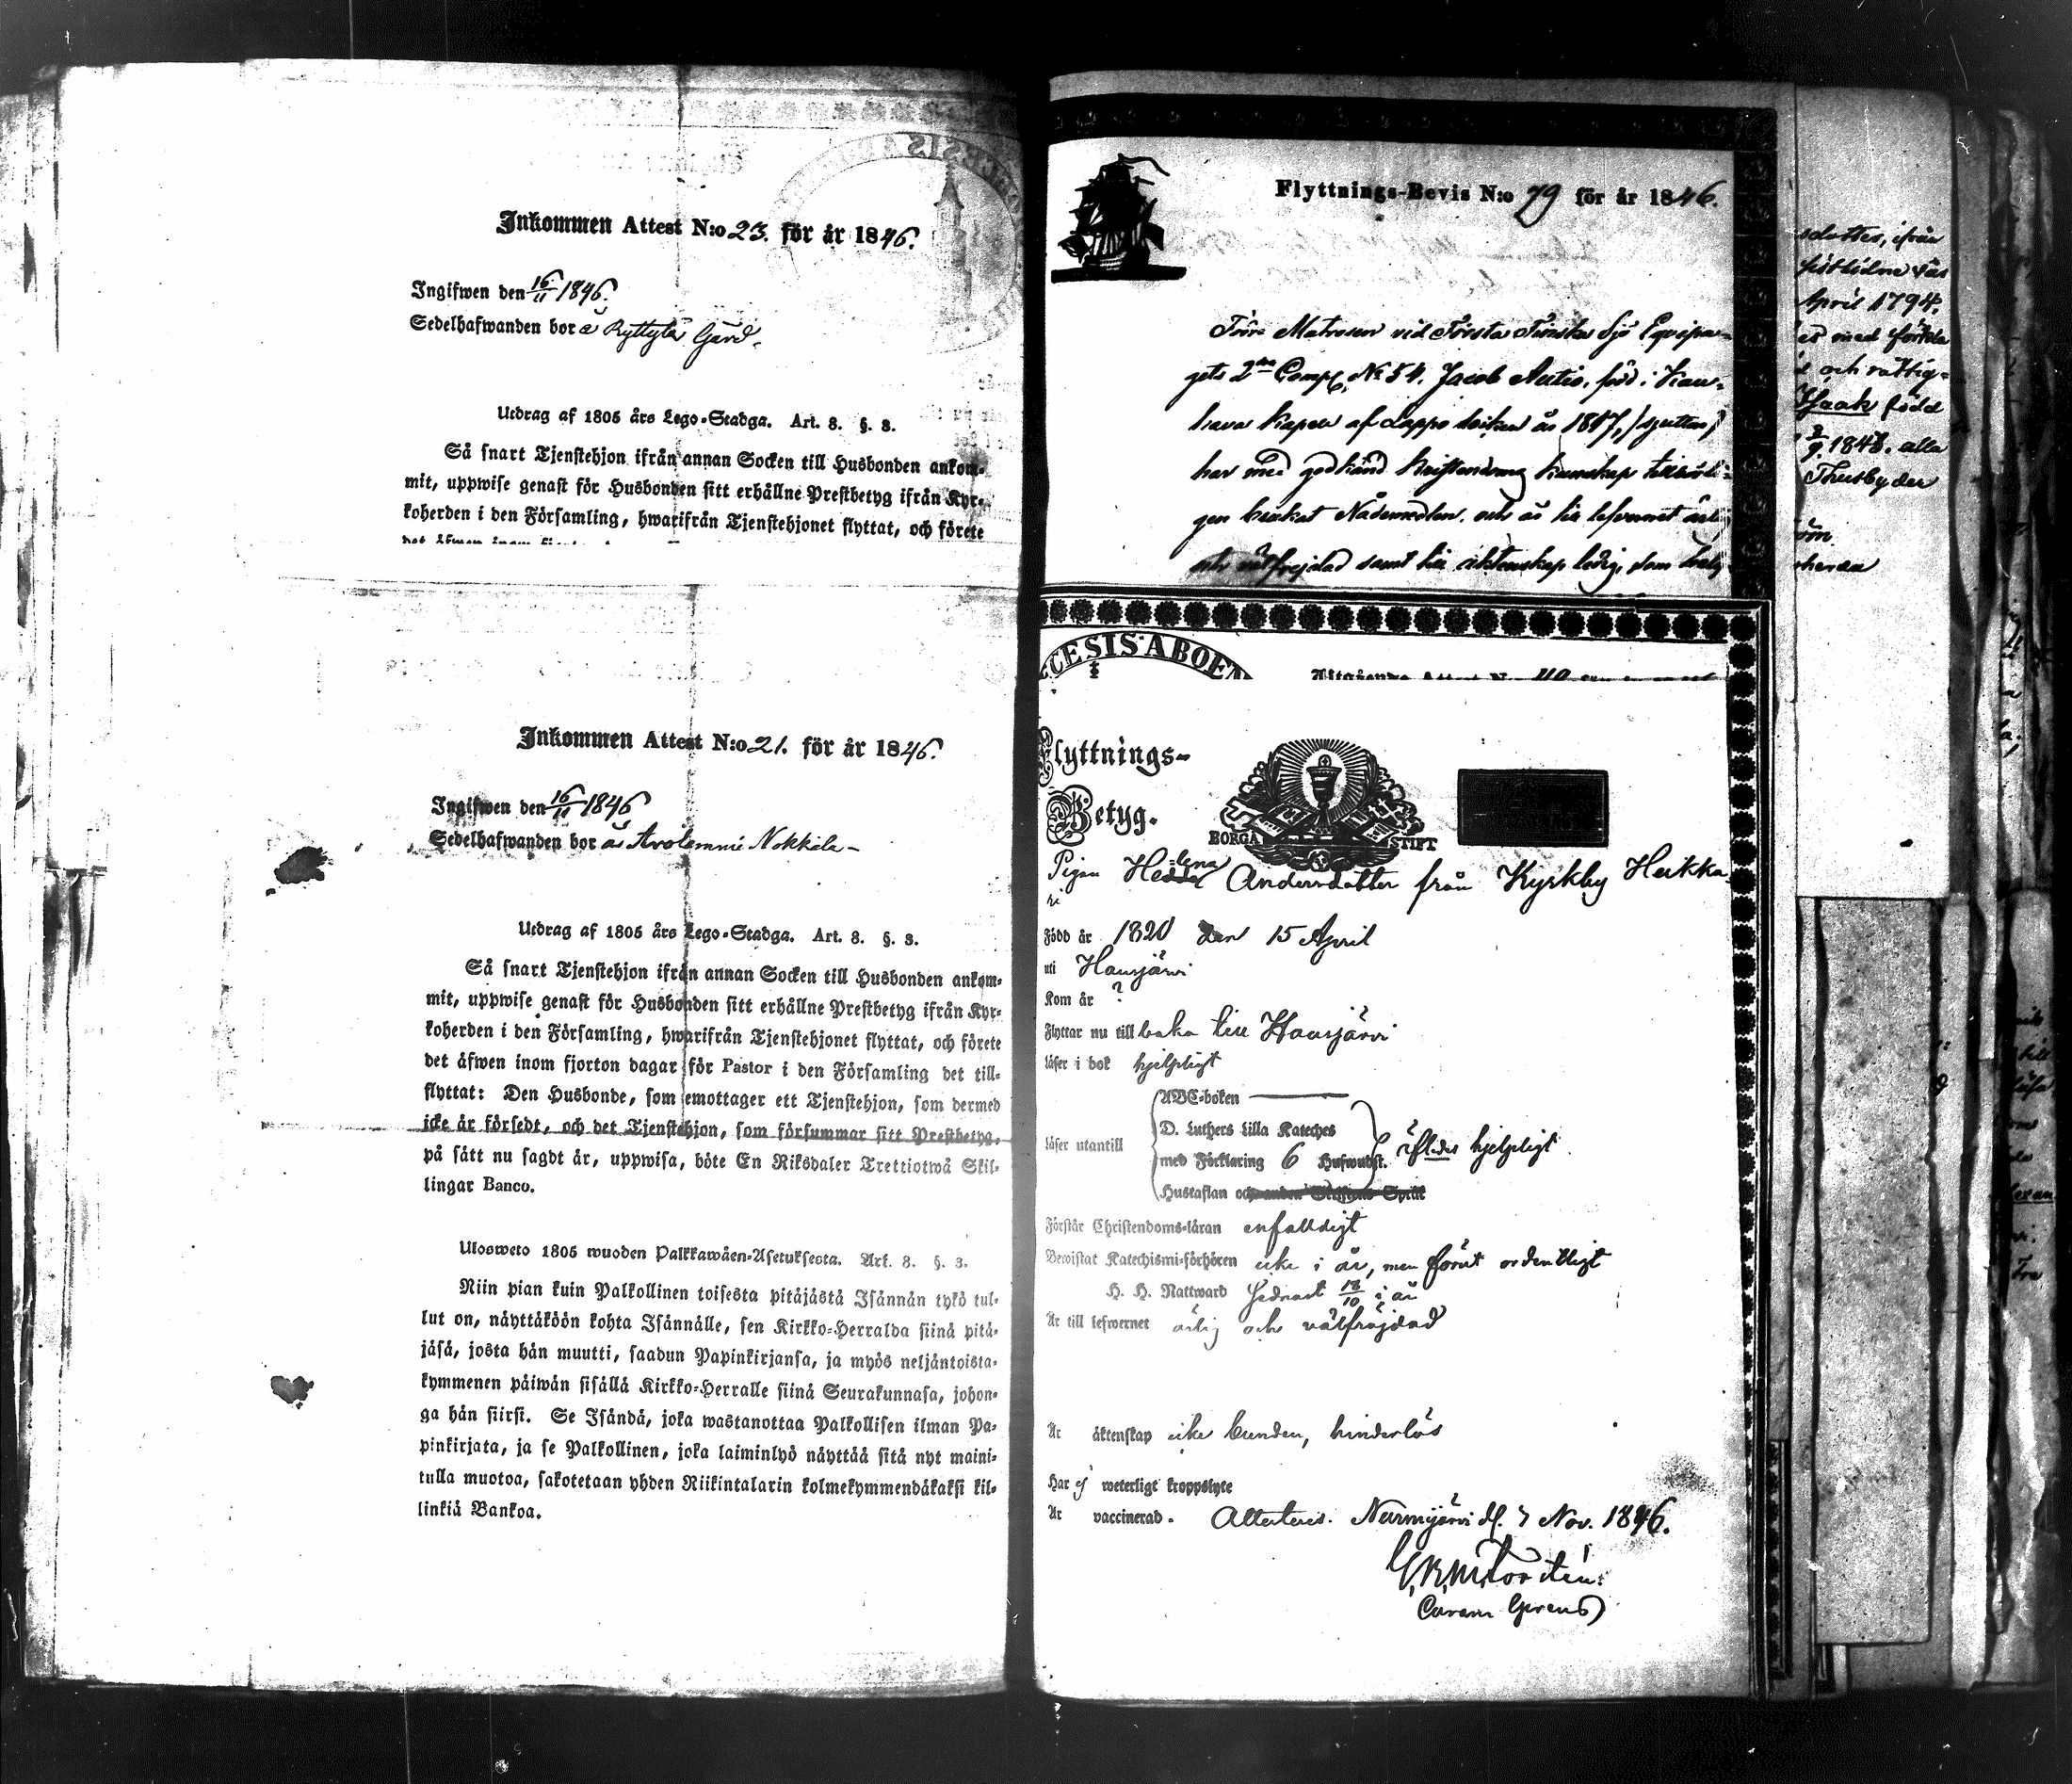 Inkommen Attest N:o 23. för år 1846.
Ingifwen den 16/11 1846.
Sedelhafwanden bor å Ryttylä Gård.
Utdrag af 1805 års Lego-Stadga. Art. 8. §. 3.
Så snart Tjenstehjon ifrån annan Socken till Husbonden ankom-
mit, uppwise genast för Husbonden sitt erhållne Prestbetyg ifrån Kyr-
koherden i den Församling, hwarifrån Tjenstehjonet flyttat, och förete
det äfwen inom
Inkommen Attest N:o 21. för år 1846.
Ingifwen den 16/11 1846
Sedelhafwanden bor Nokkila
Utdrag af 1805 års Lego-Stadga. Art. 8. §. 3.
Så snart Tjenstehjon ifrån annan Socken till Husbonden ankom-
mit, uppwise genast för Husbonden sitt erhållne Prestbetyg ifrån Kyr-
koherden i den Församling, hwarifrån Tjenstehjonet flyttat, och förete
det äfwen inom fjorton dagar för Pastor i den Församling det till-
flyttat: Den Husbonde, som emottager ett Tjenstehjon, som dermed
icke är försedt, och det Tjenstehjon, som försummar sitt Prestbetyg,
på sätt nu sagdt är, uppwisa, böte En Riksdaler Trettiotwå Skil-
lingar Banco.
Ulosweto 1805 wuoden Palkkawäen-Asetuksesta. Art. 8. §. 3.
Niin pian kuin Palkollinen toisesta pitäjästä Isännän tykö tul-
lut on, näyttäköön kohta Isännälle, sen Kirkko-Herralda siinä pitä-
jäsä, josta hän muutti, saadun Papinkirjansa, ja myös neljäntoista-
kymmenen päiwän sisällä Kirkko-Herralle siinä Seurakunnasa, johon-
ga hän siirsi. Se Isändä, joka wastanottaa Palkollisen ilman Pa-
pinkirjata, ja se Palkollinen, joka laiminlyö näyttää sitä nyt maini-
tulla muotoa, sakotetaan yhden Riikintalarin kolmekymmendäkaksi kil-
linkiä Bankoa.
Flyttnings-Bevis N:o 79 för år 1846.
Förre Matrosen vid Första Finska Sjö Eqvipa-
gets 2dra Comp. No 54. Jacob Autio, född i Kau-
hava Kapell af Lappo socken år 1817,
har med godkänd kristendoms kunskap
gen brukat Nådemedlen, och är till lefvernet ärlig
och välfrejdad samt till äktenskap ledig, som
ECESIS ABOEN
Flyttnings-
Betyg.
BORGÅ STIFT
Pigan Helena Andersdotter från Kyrkby Heikka
Född år 1820 den 15 April
uti Hausjärvi
Kom år ?
Flyttar nu till baka till Hausjärvi
läser i bok hjelpligt
läser utantill
ABC-boken
D. Luthers lilla Kateches
med Förklaring 6 Hufwudst. hjelpligt
Hustaflan
Förstår Christendoms-läran enfaldigt
Bewistat Katechismi-förhören icke i år, men förut ordentligt
H. H. Nattward sednast 18/10 i år
Är till lefwernet ärlig och välfräjdad
Är äktenskap icke bunden, hinderlös
Har ej weterligt kroppslyte
Är vaccinerad. Attesteras. Nurmijärvi d. 7 Nov. 1846.
sdotter, ifrån
April 1794.
och rättig-
Isaak född
alla
Thusbyder